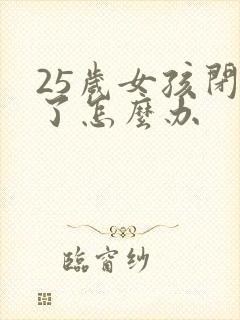 25歲女孩閉
了怎麼办
臨窗纱